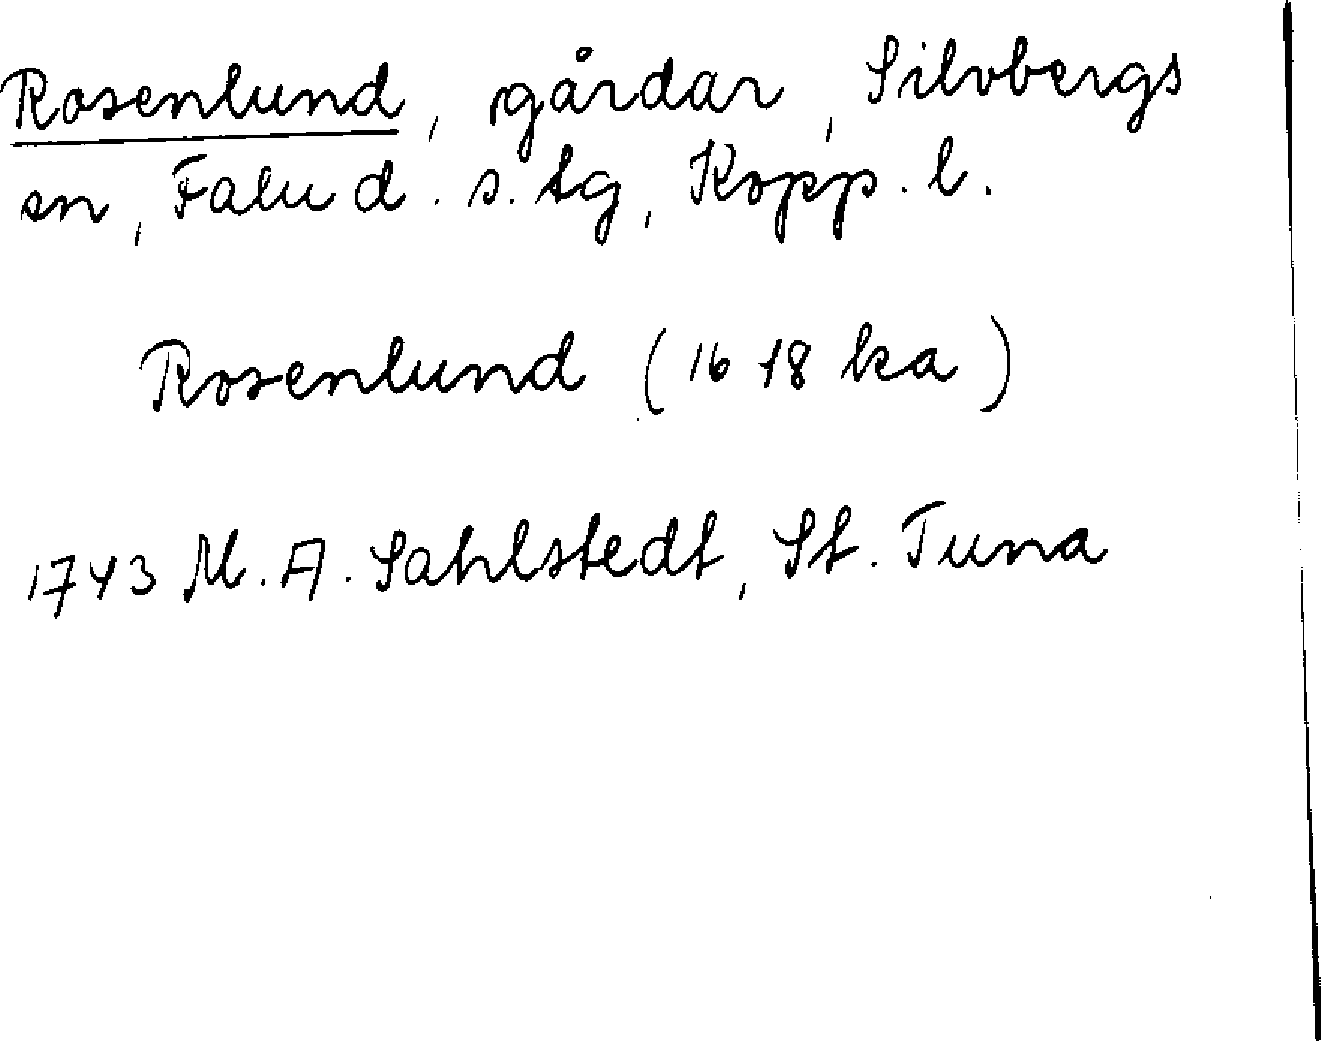 Rosenlund, gårdar, Silvbergs
sn, Falu d. s. tg, Kopp. l.
Rosenlund (1618 ka)
1743 M. A. Sahlstedt, St. Tuna